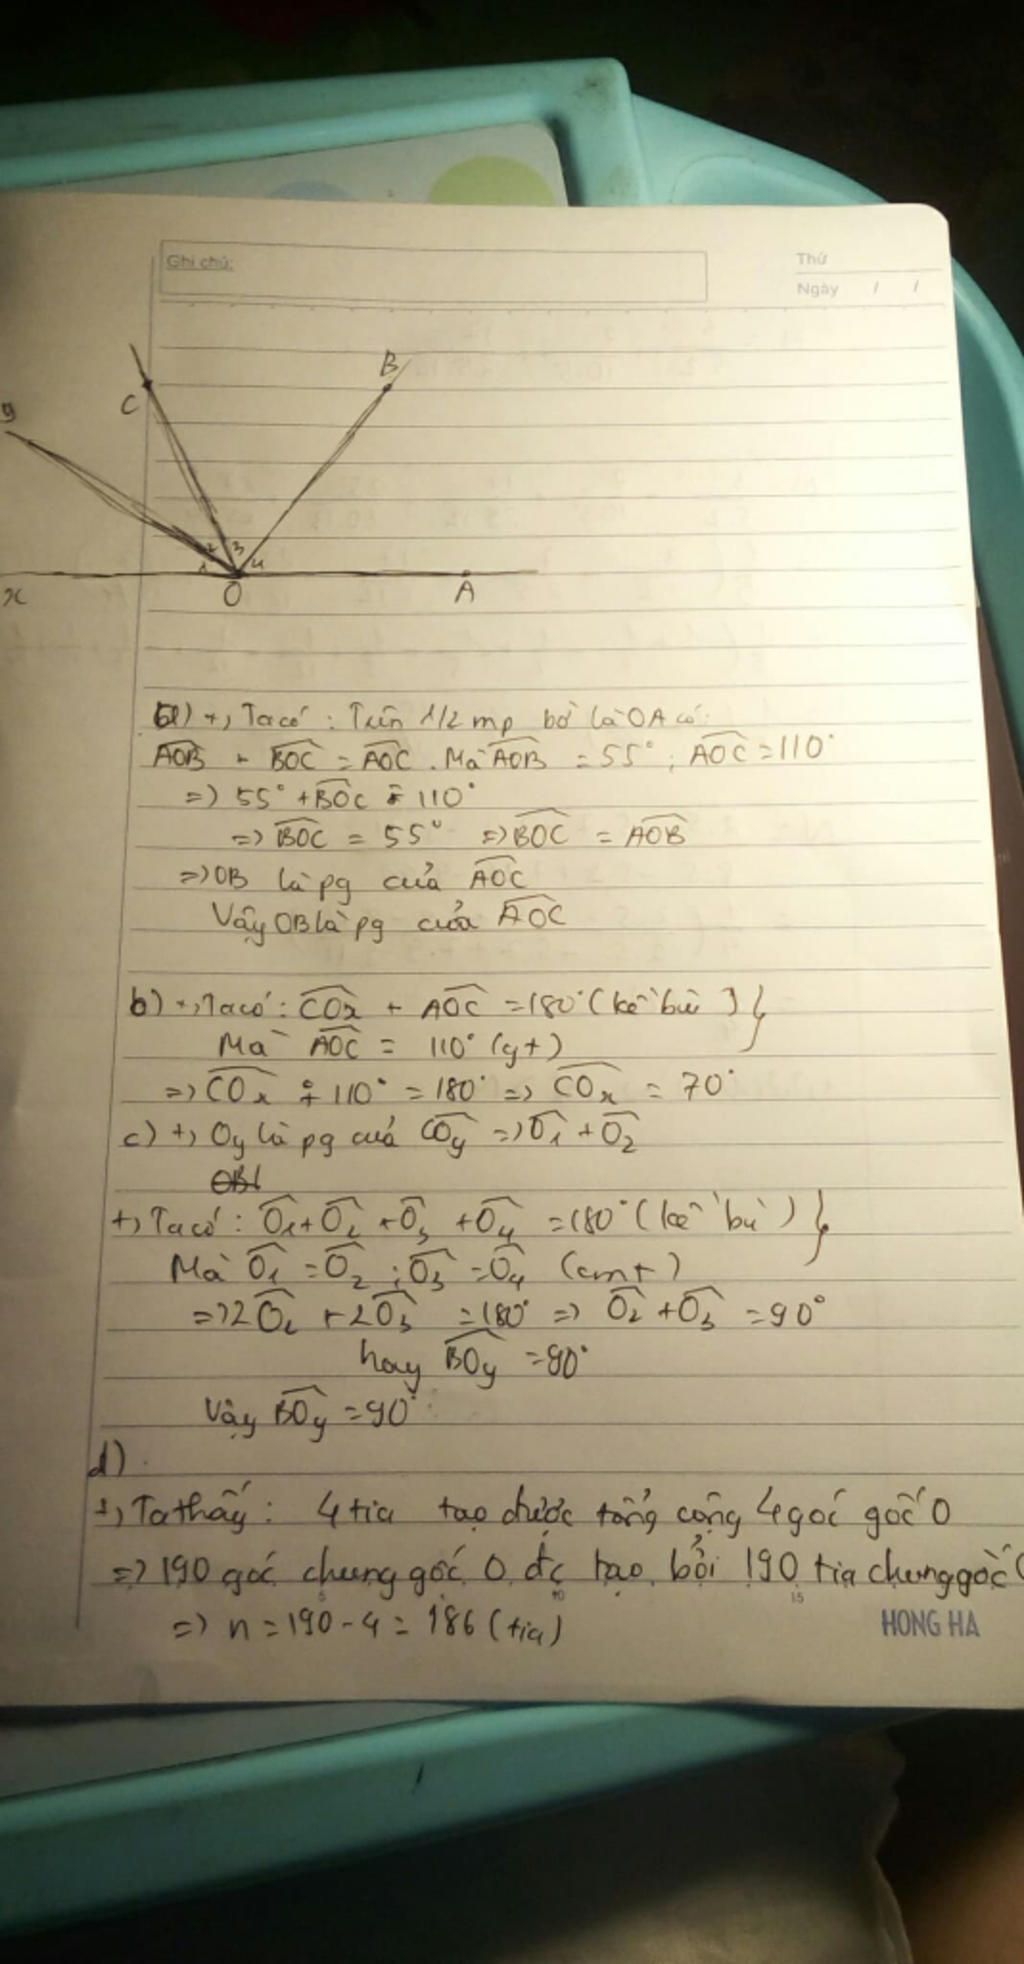 Ghi chú:
Thứ
Ngày / /
B
C
y
2 3
1 4
x O A
a) +, Ta có : Trên 1/2 mp bờ là OA có:
AOB + BOC = AOC . Mà AOB = 55° ; AOC = 110°
=> 55° + BOC = 110°
=> BOC = 55° => BOC = AOB
=> OB là pg của AOC
Vậy OB là pg của AOC
b) +, Ta có : COx + AOC = 180° (kề bù) }
Mà AOC = 110° (gt)
=> COx + 110° = 180° => COx = 70°
c) +, Oy là pg của COy => O1 + O2
OB
+, Ta có : O1 + O2 + O3 + O4 = 180° (kề bù) }
Mà O1 = O2 ; O3 = O4 (cmt)
=> 2O2 + 2O3 = 180° => O2 + O3 = 90°
hay BOy = 90°
Vậy BOy = 90°
d)
+, Ta thấy : 4 tia tạo được tổng cộng 4 góc gốc O
=> 190 góc chung gốc O đc tạo bởi 190 tia chung gốc O
=> n = 190 - 4 = 186 (tia)
5 10 15
HONG HA